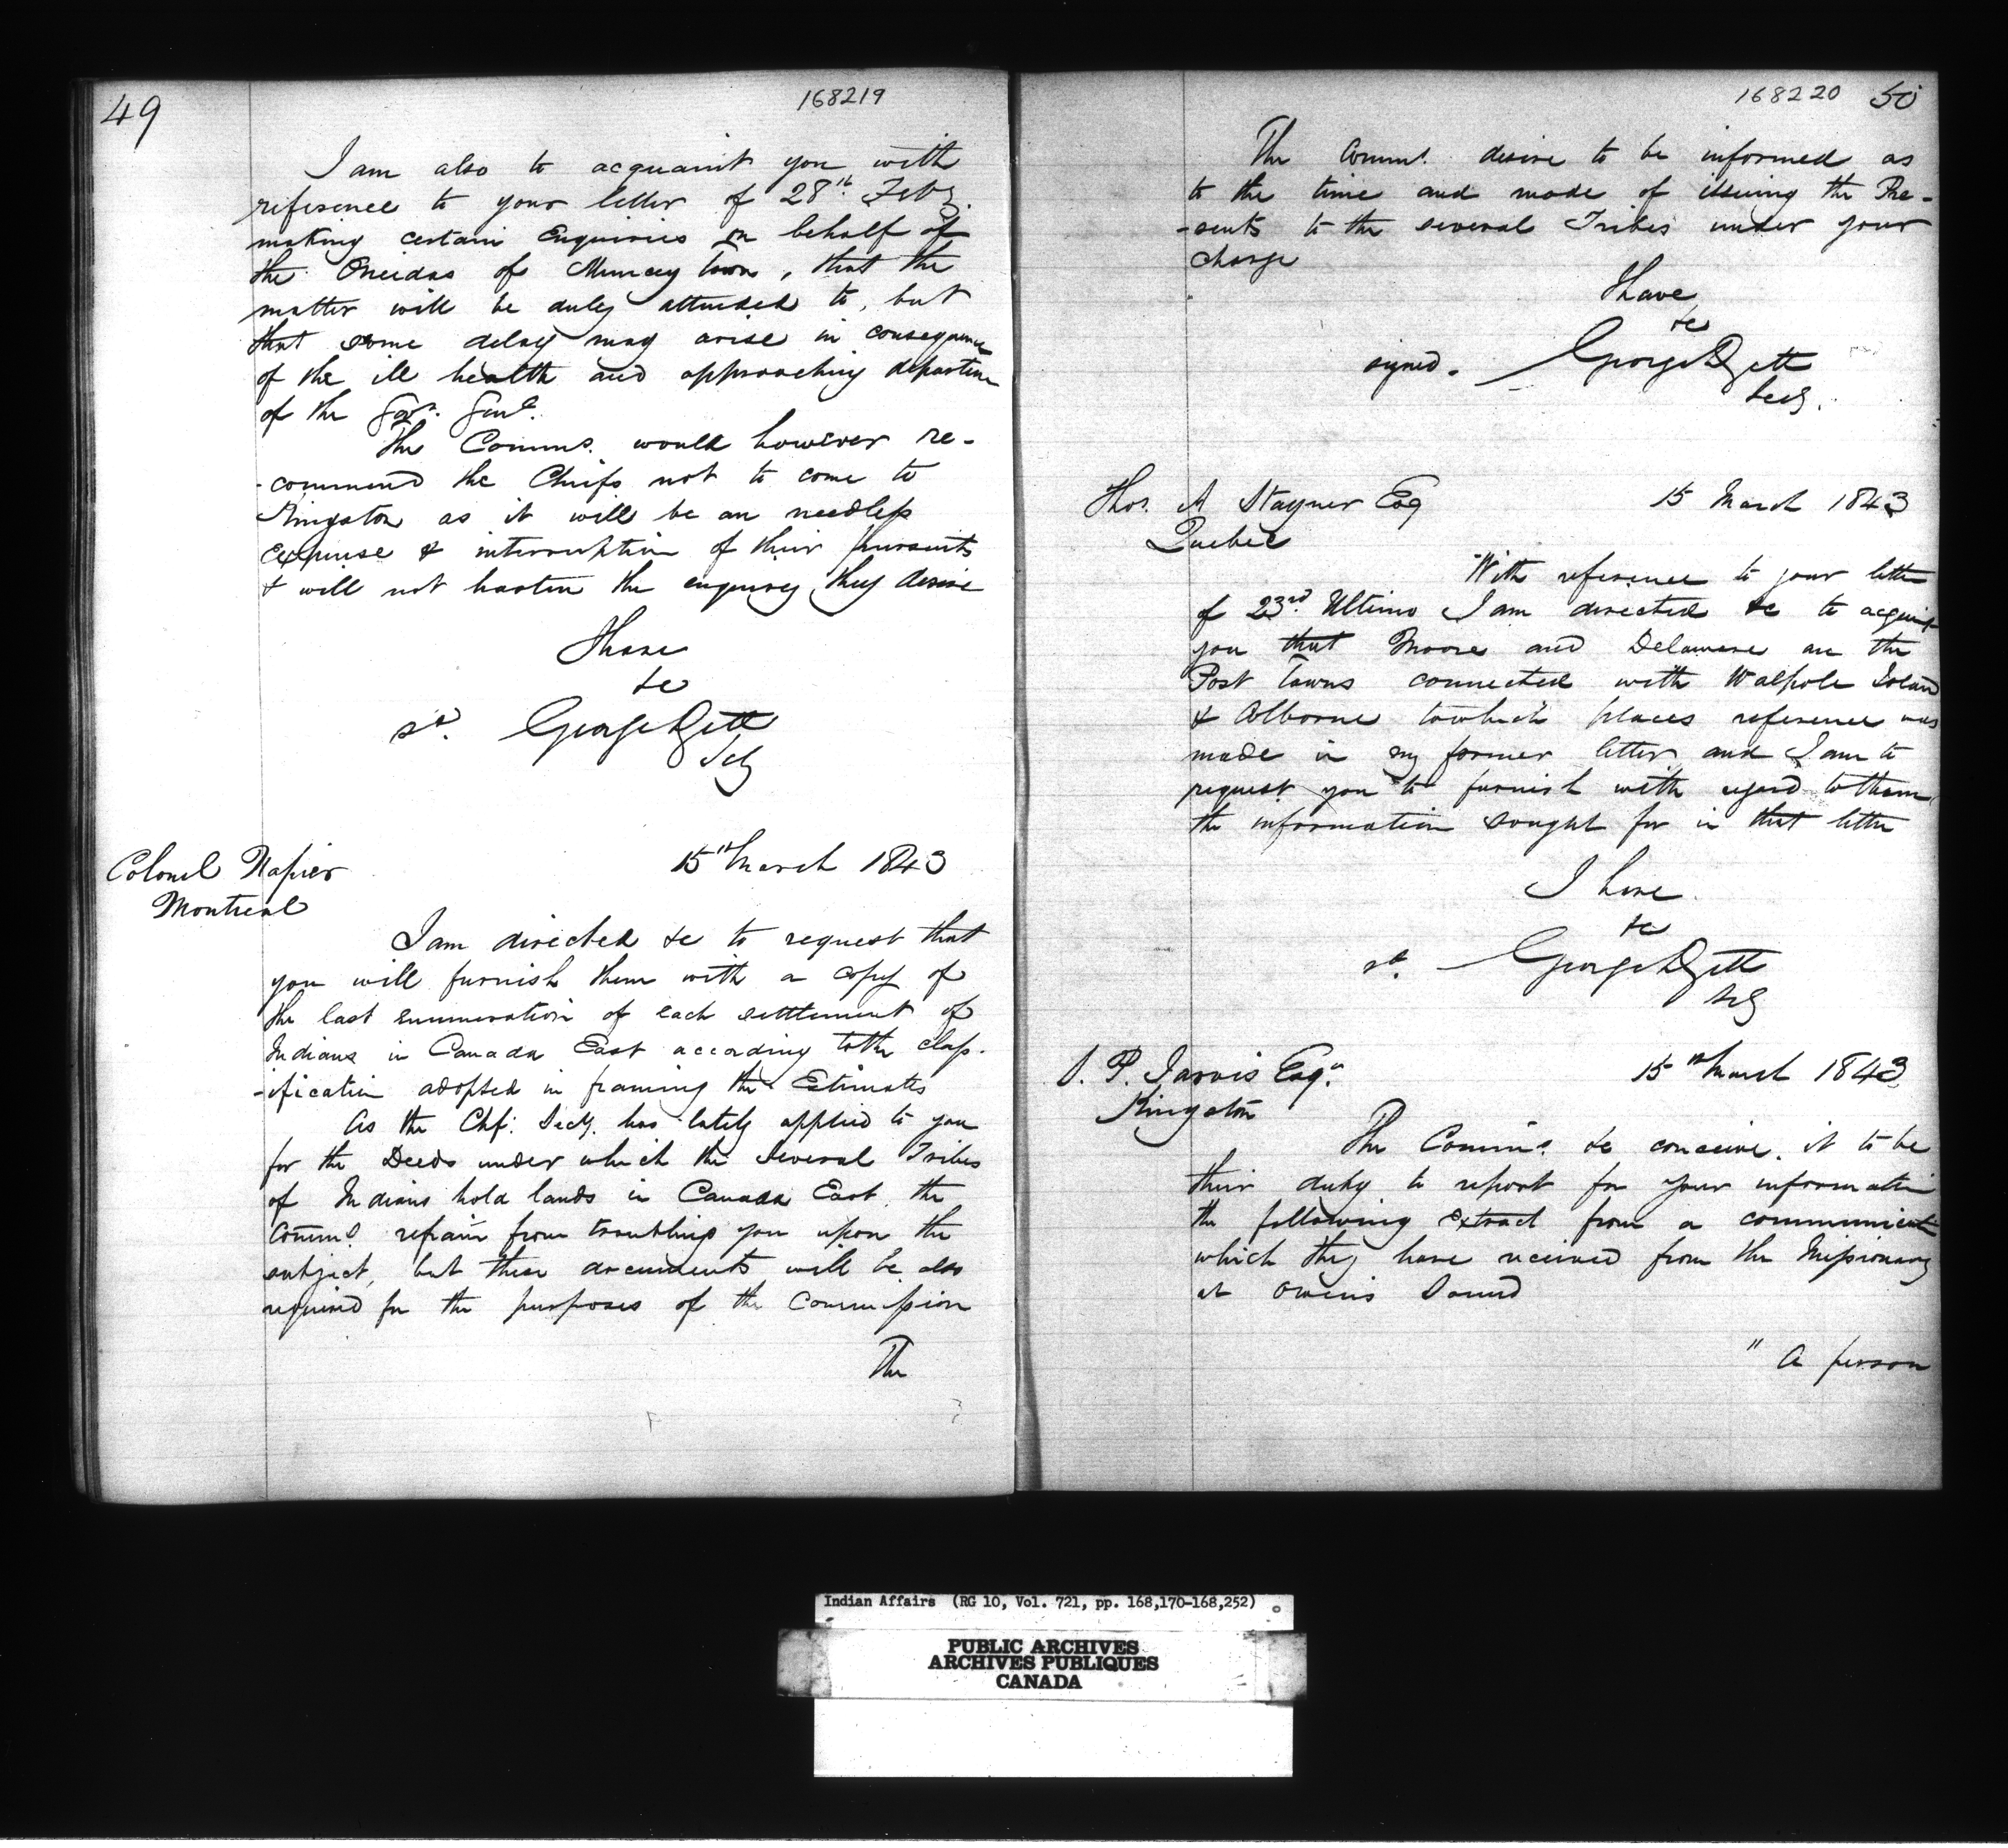 49
168219
I am also to acquaint you with
reference to your letter of 28th Feby.
making certain Enquiries on behalf of
the Oneidas of Muncey town, that the
matter will be duly attended to, but
that some delay may arise in consequence
of the ill health and approaching departure
of the Govr. Genl.
The Comms. would however re-
-commend the Chiefs not to come to
Kingston as it will be an needless
expense & interruption of their pursuits
& will not hasten the enquiry they desire
I have
&c
sd. George Jett
Secy
Colonel Napier
Montreal
15th March 1843
I am directed &c to request that
you will furnish them with a copy of
the last enumeration of each settlement of
Indians in Canada East according to the class-
-ification adopted in framing the Estimates
As the Chf: Secy. has lately applied to you
for the Deeds under which the several Tribes
of Indians hold lands in Canada East, the
Comms. refrain from troubling you upon the
subject, but these documents will be also
required for the purposes of the Commission
The
168220 50
The Comms. desire to be informed as
to the time and mode of issuing the Pre-
-sents to the several Tribes under your
charge
I have
&c
signed. George Jett
Secy.
Thos. A Stayner Esq
Quebec
15 March 1843
With reference to your letter
of 23rd. Ultimo I am directed &c to acquaint
you that Moore and Delaware are the
Post Towns connected with Walpole Island
& Colborne to which places reference was
made in my former letter and I am to
request you to furnish with regard to them
the information sought for in that letter
I have
&c
sd. George Jett
Secy
S. P. Jarvis Esqr
Kingston
15th March 1843
The Comms. &c conceive it to be
their duty to report for your information
the following extract from a communicatn
which they have received from the Missionary
at Owens Sound
" A person
Indian Affairs (RG 10, Vol. 721, pp. 168,170-168,252)
PUBLIC ARCHIVES
ARCHIVES PUBLIQUES
CANADA